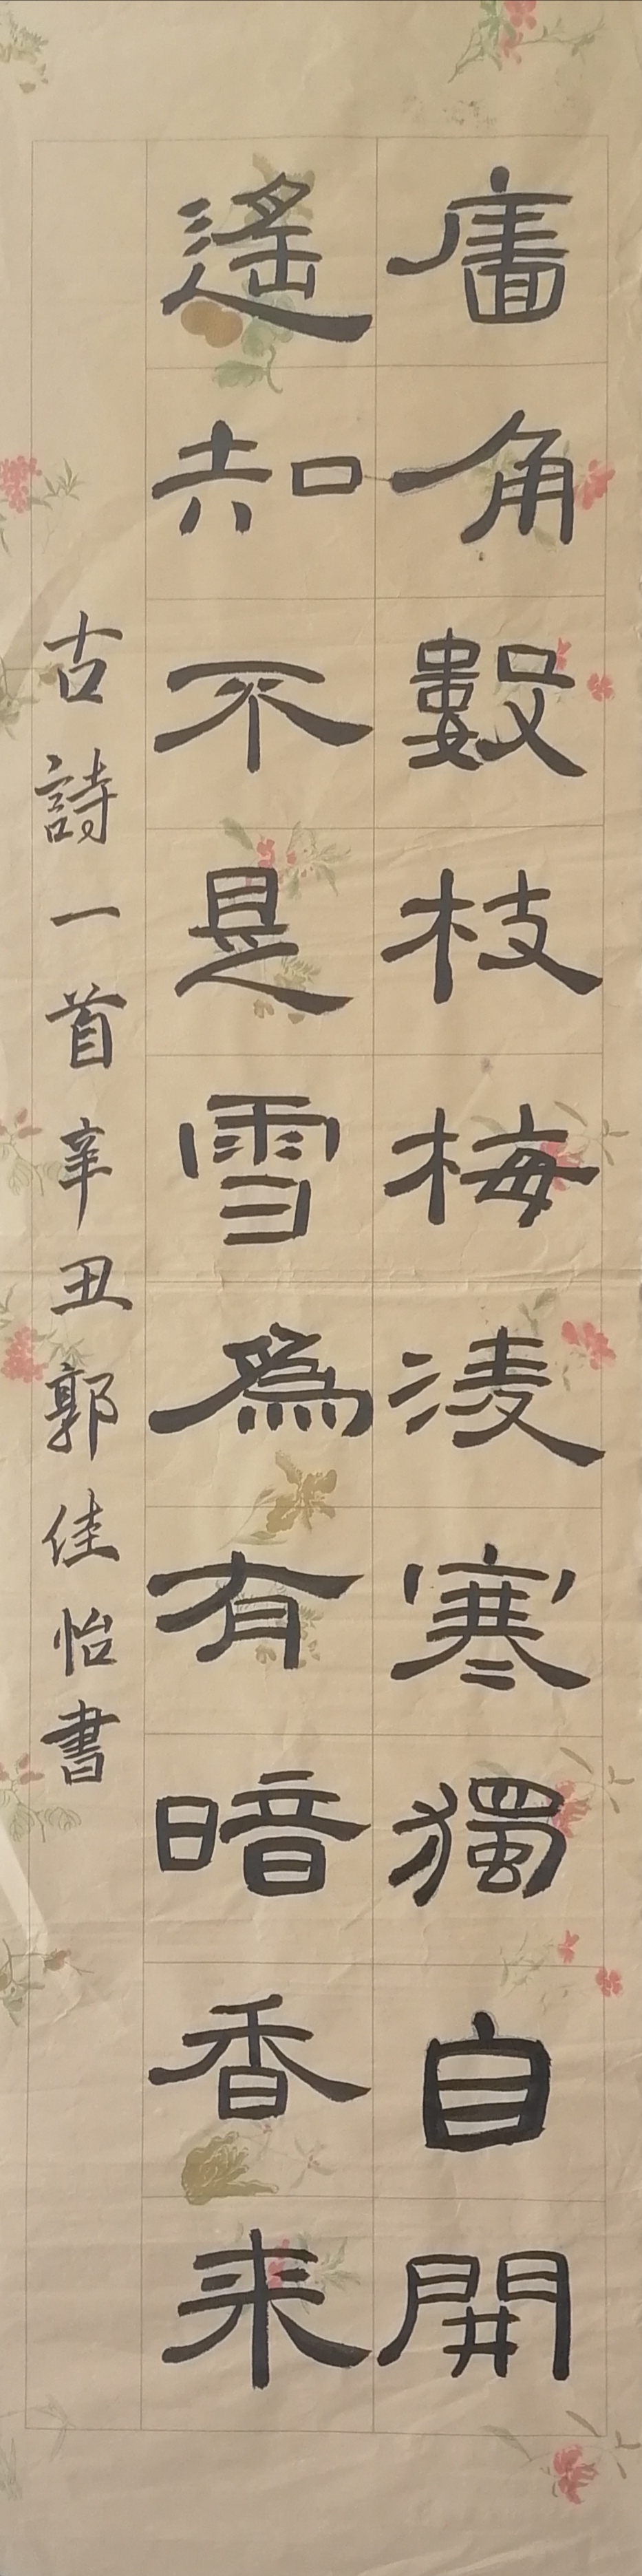 廧角數枝梅凌寒獨自開
遙知不是雪為有暗香来
古詩一首辛丑郭佳怡書